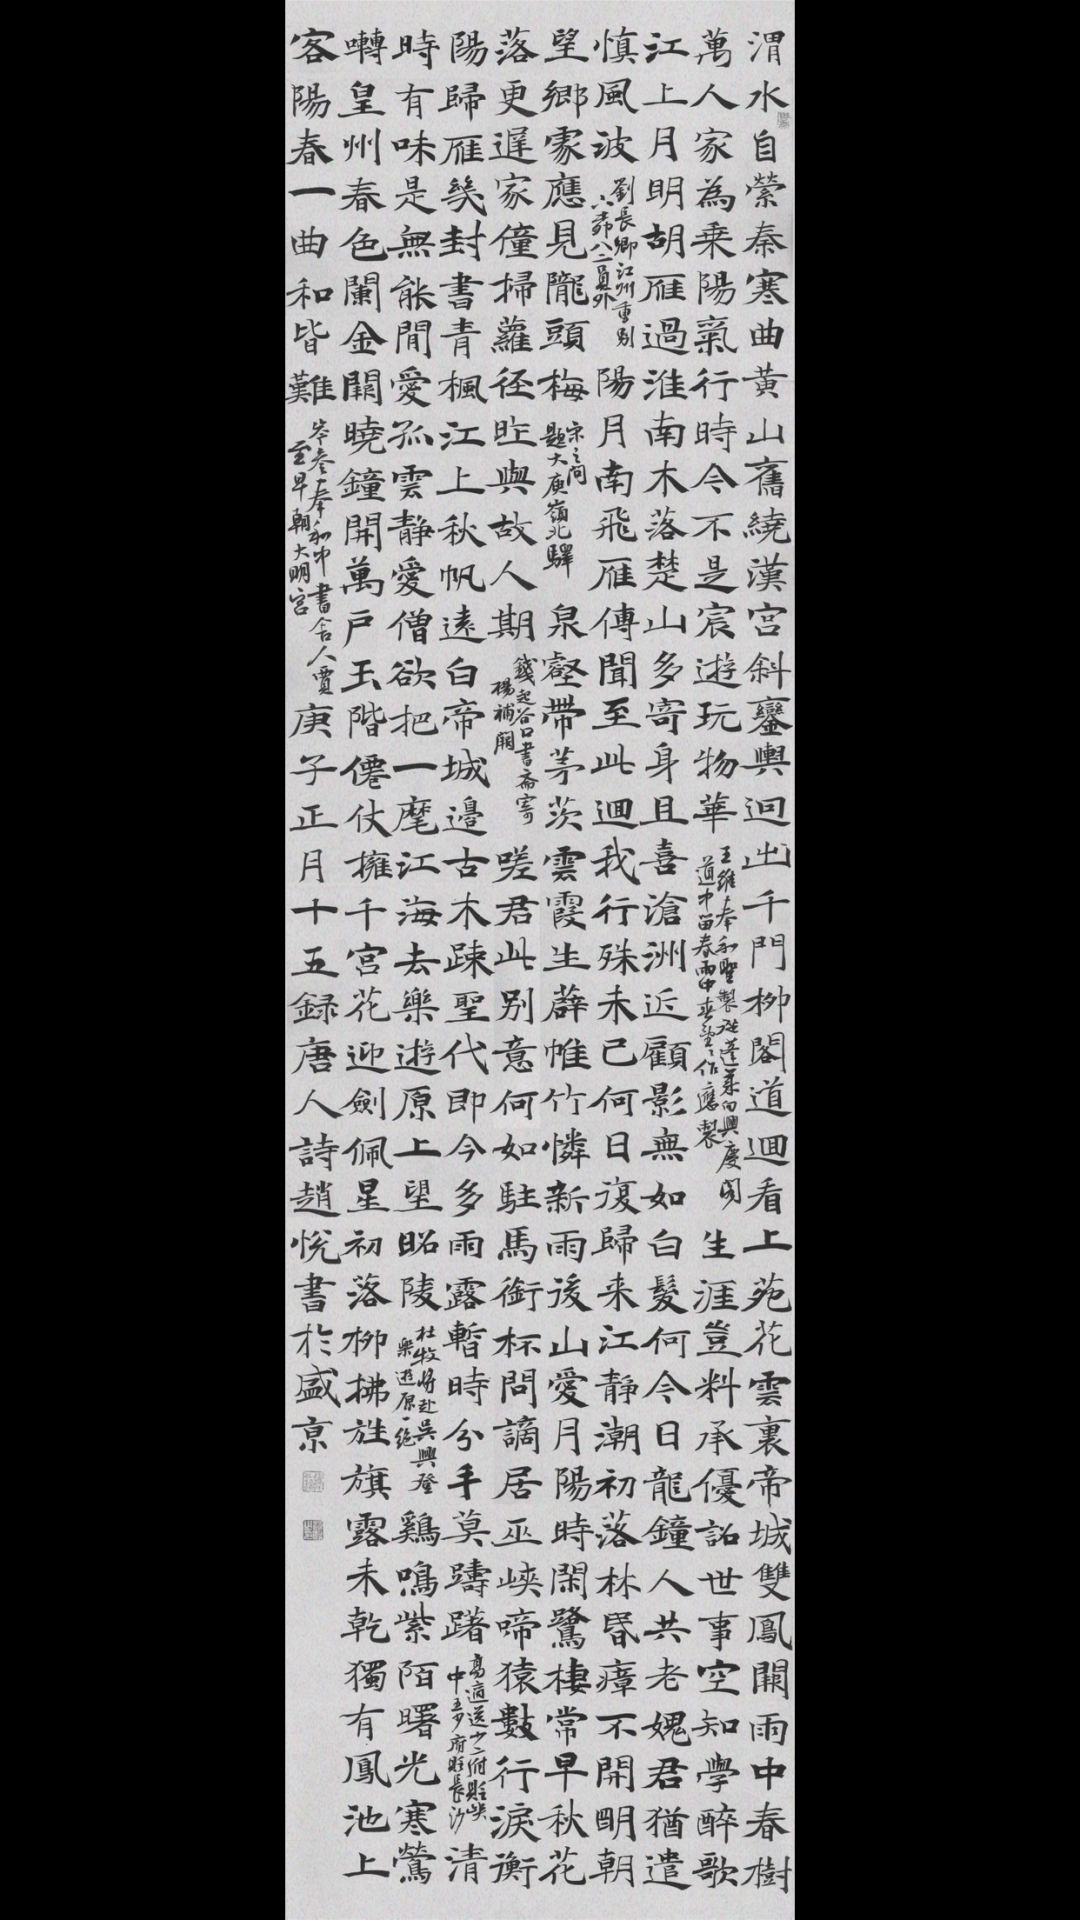 渭水自縈秦寒曲黃山舊繞漢宮斜鑾輿迥出千門柳閣道迴看上苑花雲裏帝城雙鳳闕雨中春樹
萬人家為乘陽氣行時令不是宸遊玩物華
王維奉和聖製從蓬萊向興慶閣
道中留春雨中春望之作應製
生涯豈料承優詔世事空知學醉歌
江上月明胡雁過淮南木落楚山多寄身且喜滄洲近顧影無如白髮何今日龍鐘人共老媿君猶遣
慎風波
劉長卿江州重別
八薛八二員外
陽月南飛雁傳聞至此迴我行殊未已何日復歸来江靜潮初落林昏瘴不開明朝
望鄉處應見隴頭梅
宋之問
題大庾嶺北驛
泉壑帶茅茨雲霞生薜帷竹憐新雨後山愛月陽時閑鷺棲常早秋花
落更遲家僮掃蘿徑昨與故人期
錢起谷口書齋寄
楊補闕
嗟君此別意何如駐馬銜杯問謫居巫峽啼猿數行淚衡
陽歸雁幾封書青楓江上秋帆遠白帝城邊古木踈聖代即今多雨露暫時分手莫躊躇
高適送少府貶峽
中王少府貶長沙
清
時有味是無能閒愛孤雲靜愛僧欲把一麾江海去樂遊原上望昭陵
杜牧將赴吳興登
樂遊原一絕
鷄鳴紫陌曙光寒鶯
囀皇州春色闌金闕曉鐘開萬戶玉階僊仗擁千官花迎劍佩星初落柳拂旌旗露未乾獨有鳳池上
客陽春一曲和皆難
岑參奉和中書舍人賈
至早朝大明宮
庚子正月十五録唐人詩趙悅書於盛京